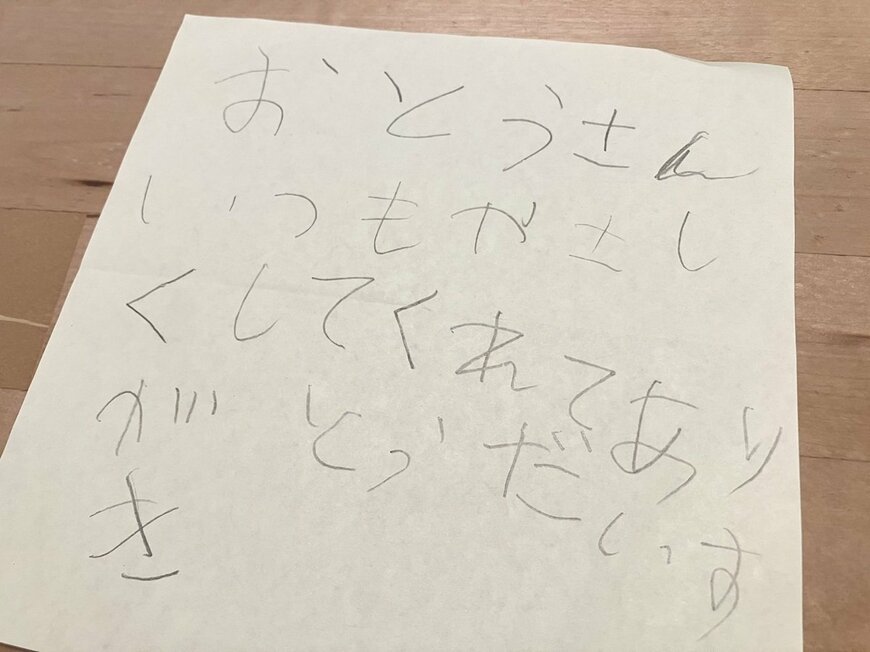 おとうさん
いつもやさし
くしてくれてあり
がとうだいす
き